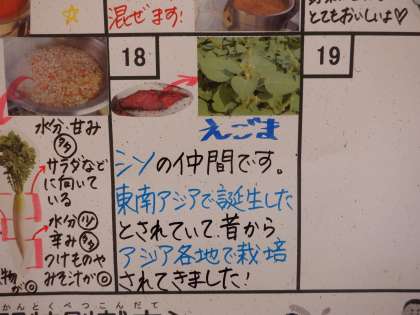 混ぜます!
とてもおいしいよ♡
18
19
えごま
シソの仲間です。
東南アジアで誕生した
とされていて、昔から
アジア各地で栽培
されてきました!
水分・甘み
多
サラダなど
に向いて
いる
水分 少
辛み 多
つけものや
みそ汁が◎
物が◎
かんとくべつこんだて